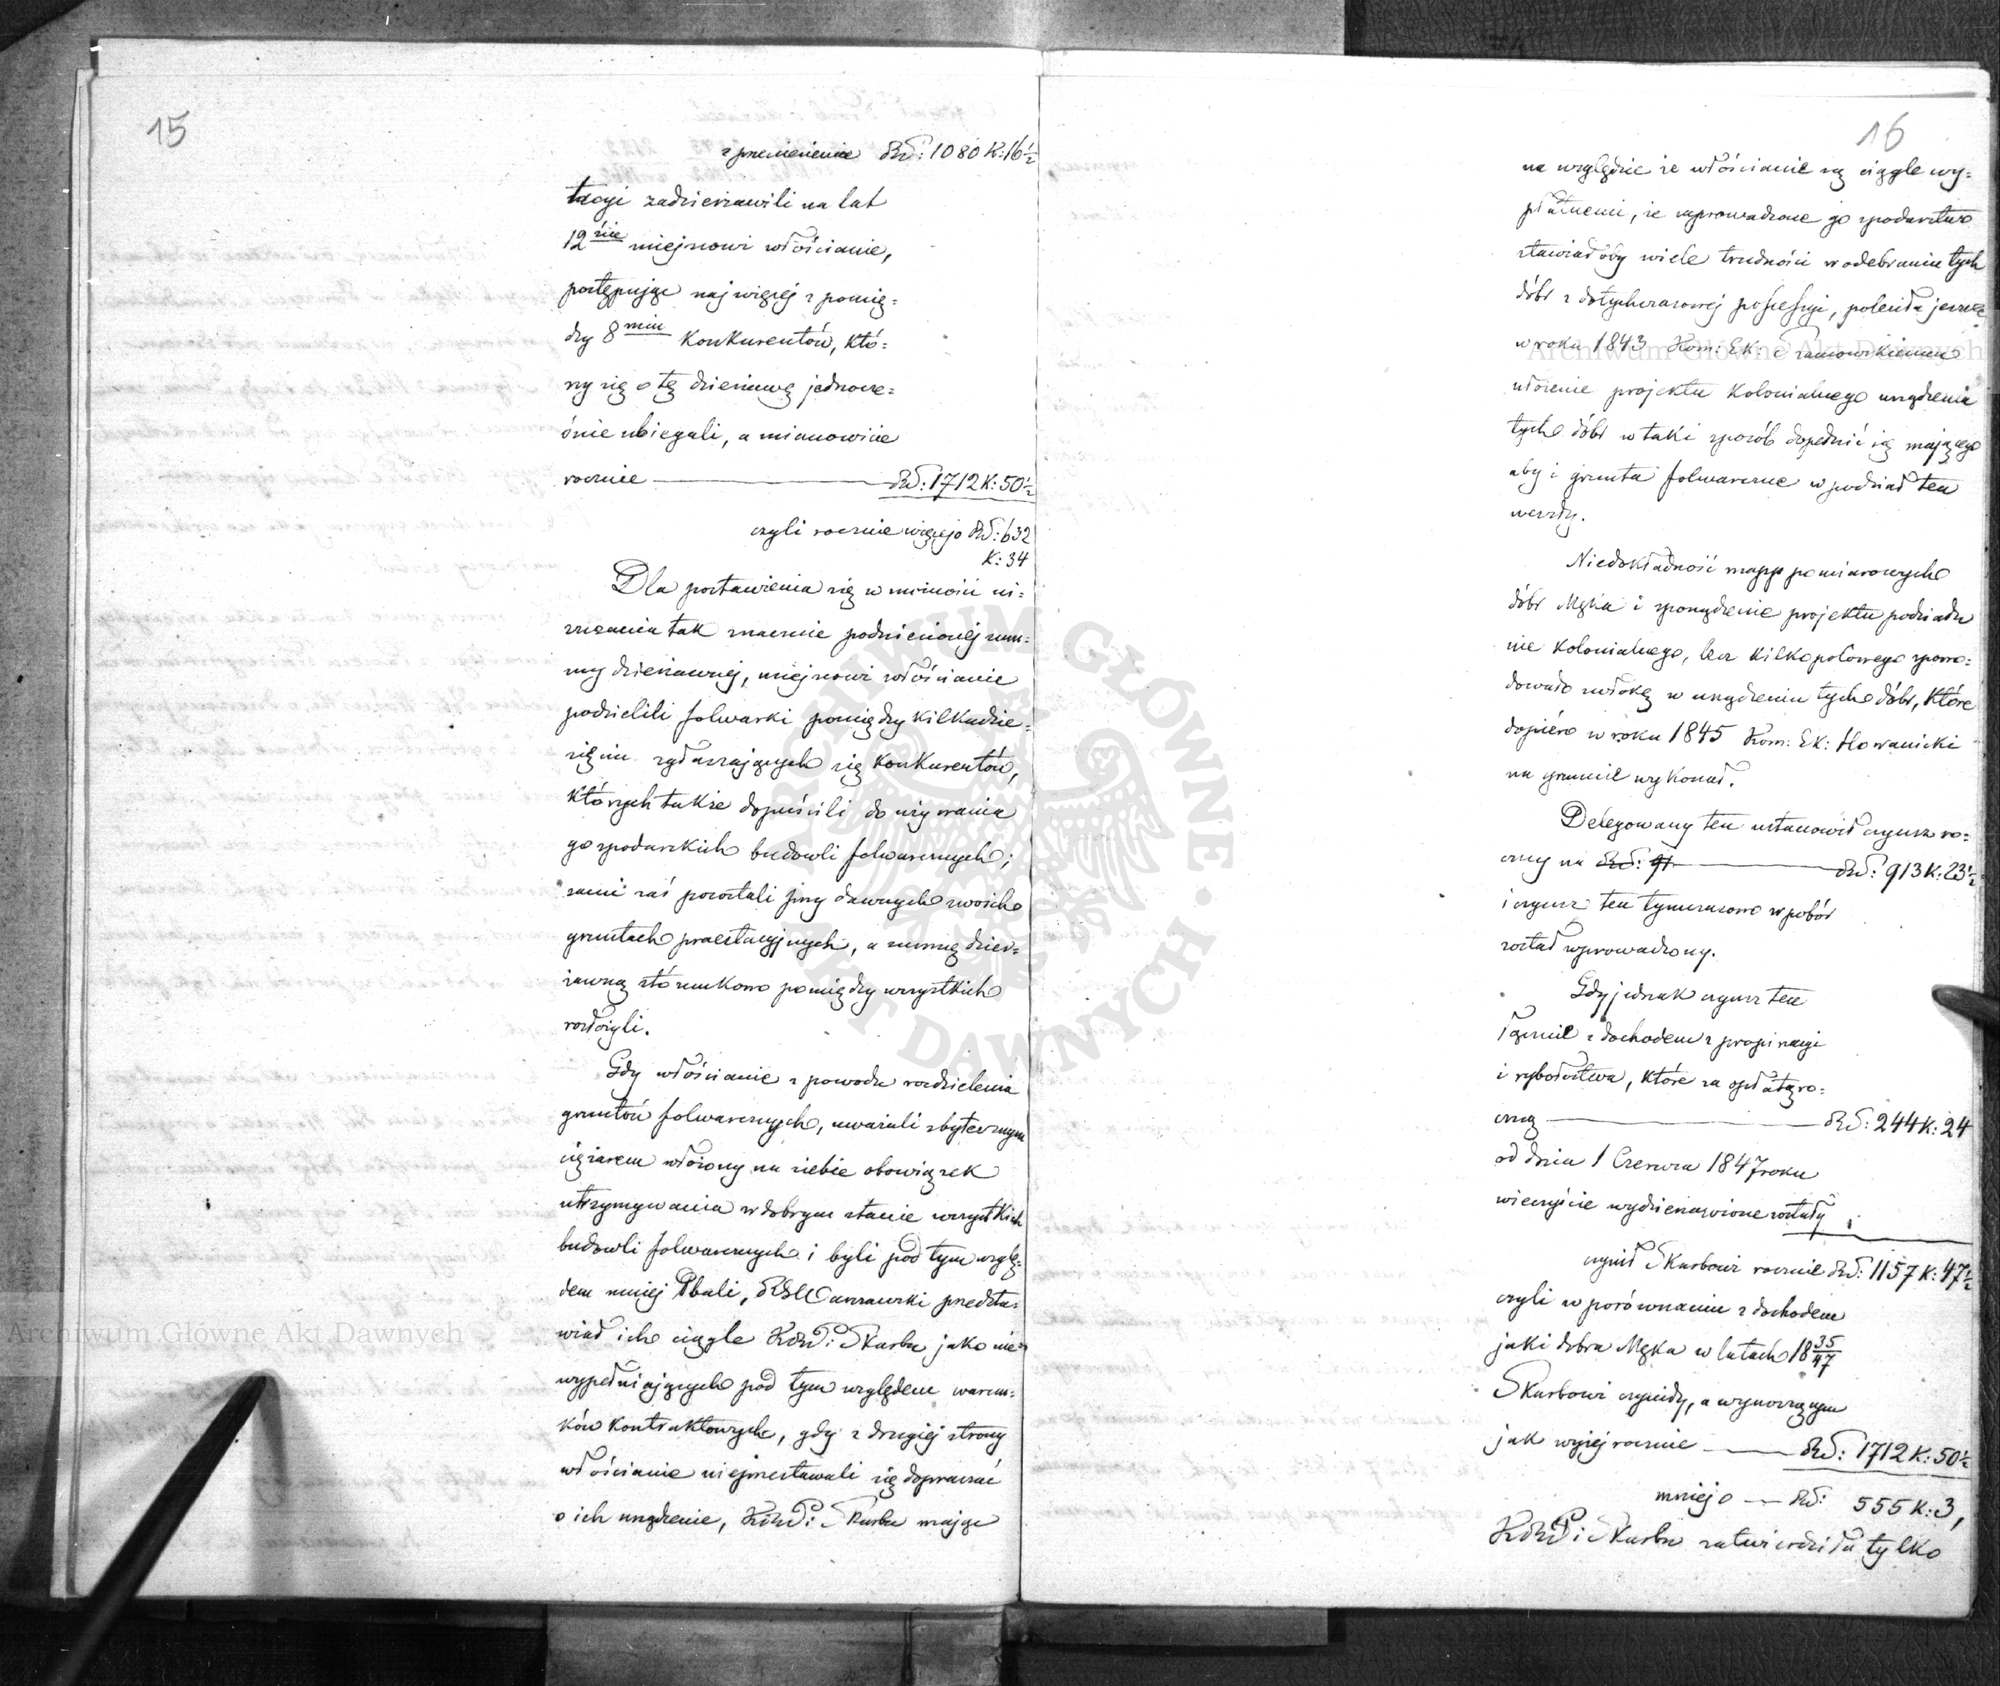 15
z przeniesienia Rsr: 1080 K: 16½
tacyi zadzierżawili na lat
12ście miejscowi włościanie,
postępując najwięcej z pomię=
dzy 8miu Konkurentów, któ=
rzy się o tę dzierżawę jednocze=
śnie ubiegali, a mianowicie
rocznie ——— Rsr: 1712 K: 50½
czyli rocznie więcej o Rsr: 632
K: 34
Dla postawienia się w możności ui=
szczania tak znacznie podniesionej sum=
my dzierżawnej, miejscowi włościanie
podzielili folwarki pomiędzy kilkudzie=
sięciu zgłaszających się Konkurentów,
których także dopuścili do używania
gospodarskich budowli folwarcznych;
sami zaś pozostali przy dawnych swoich
gruntach praestacyjnych, a summę dzier=
żawną stósunkowo pomiędzy wszystkich
rozłożyli.
Gdy włościanie z powodu rozdzielenia
gruntów folwarcznych, uważali zbytecznym
ciężarem włożony na siebie obowiązek
utrzymywania w dobrym stanie wszystkich
budowli folwarcznych i byli pod tym wzglę=
dem mniej dbali, Warszawski przedsta=
wiał ich ciągle KRP i Skarbu jako nie=
wypełniających pod tym względem warun=
ków Kontraktowych, gdy z drugiej strony
włościanie nieprzestawali się dopraszać
o ich urządzenie, KRP i Skarbu mając
16
na względzie że włościanie są ciągle wy=
płatnemi, że wprowadzone gospodarstwo
stawiałoby wiele trudności w odebraniu tych
dóbr z dotychczasowej possessyi, poleciła jeszcze
w roku 1843 Kom: Ek:
ułożenie projektu Kolonialnego urządzenia
tych dóbr w taki sposób dopełnić się mającego
aby i grunta folwarczne w podział ten
weszły.
Niedokładność mapp pomiarowych
dóbr Męka i sporządzenie projektu podziału
nie kolonialnego, lecz kilkopolowego spowo=
dowało zwłokę w urządzeniu tych dóbr, które
dopiéro w roku 1845 Kom: Ek: Howanicki
na gruncie wykonał.
Delegowany ten ustanowił czynsz ro=
czny na Rsr: 91 ——— Rsr: 913 K: 23½
i czynsz ten tymczasowo w pobór
został wprowadzony.
Gdy jednak czynsz ten
łącznie z dochodem z propinacyi
i rybołostwa, które za opłatą ro=
czną ——— Rsr: 244 K: 24
od dnia 1 Czerwca 1847 roku
wieczyście wydzierżawione zostały
czynił Skarbowi rocznie Rsr: 1157 K: 47½
czyli w porównaniu z dochodem
jaki dobra Męka w latach 18 35/47
Skarbowi czyniły, a wynoszącym
jak wyżej rocznie ——— Rsr: 1712 K: 50½
mniej o — Rsr: 555 K: 3,
KRP i Skarbu zatwierdziła tylko
ARCHIWUM GŁÓWNE AKT DAWNYCH
Archiwum Główne Akt Dawnych
Archiwum Główne Akt Dawnych